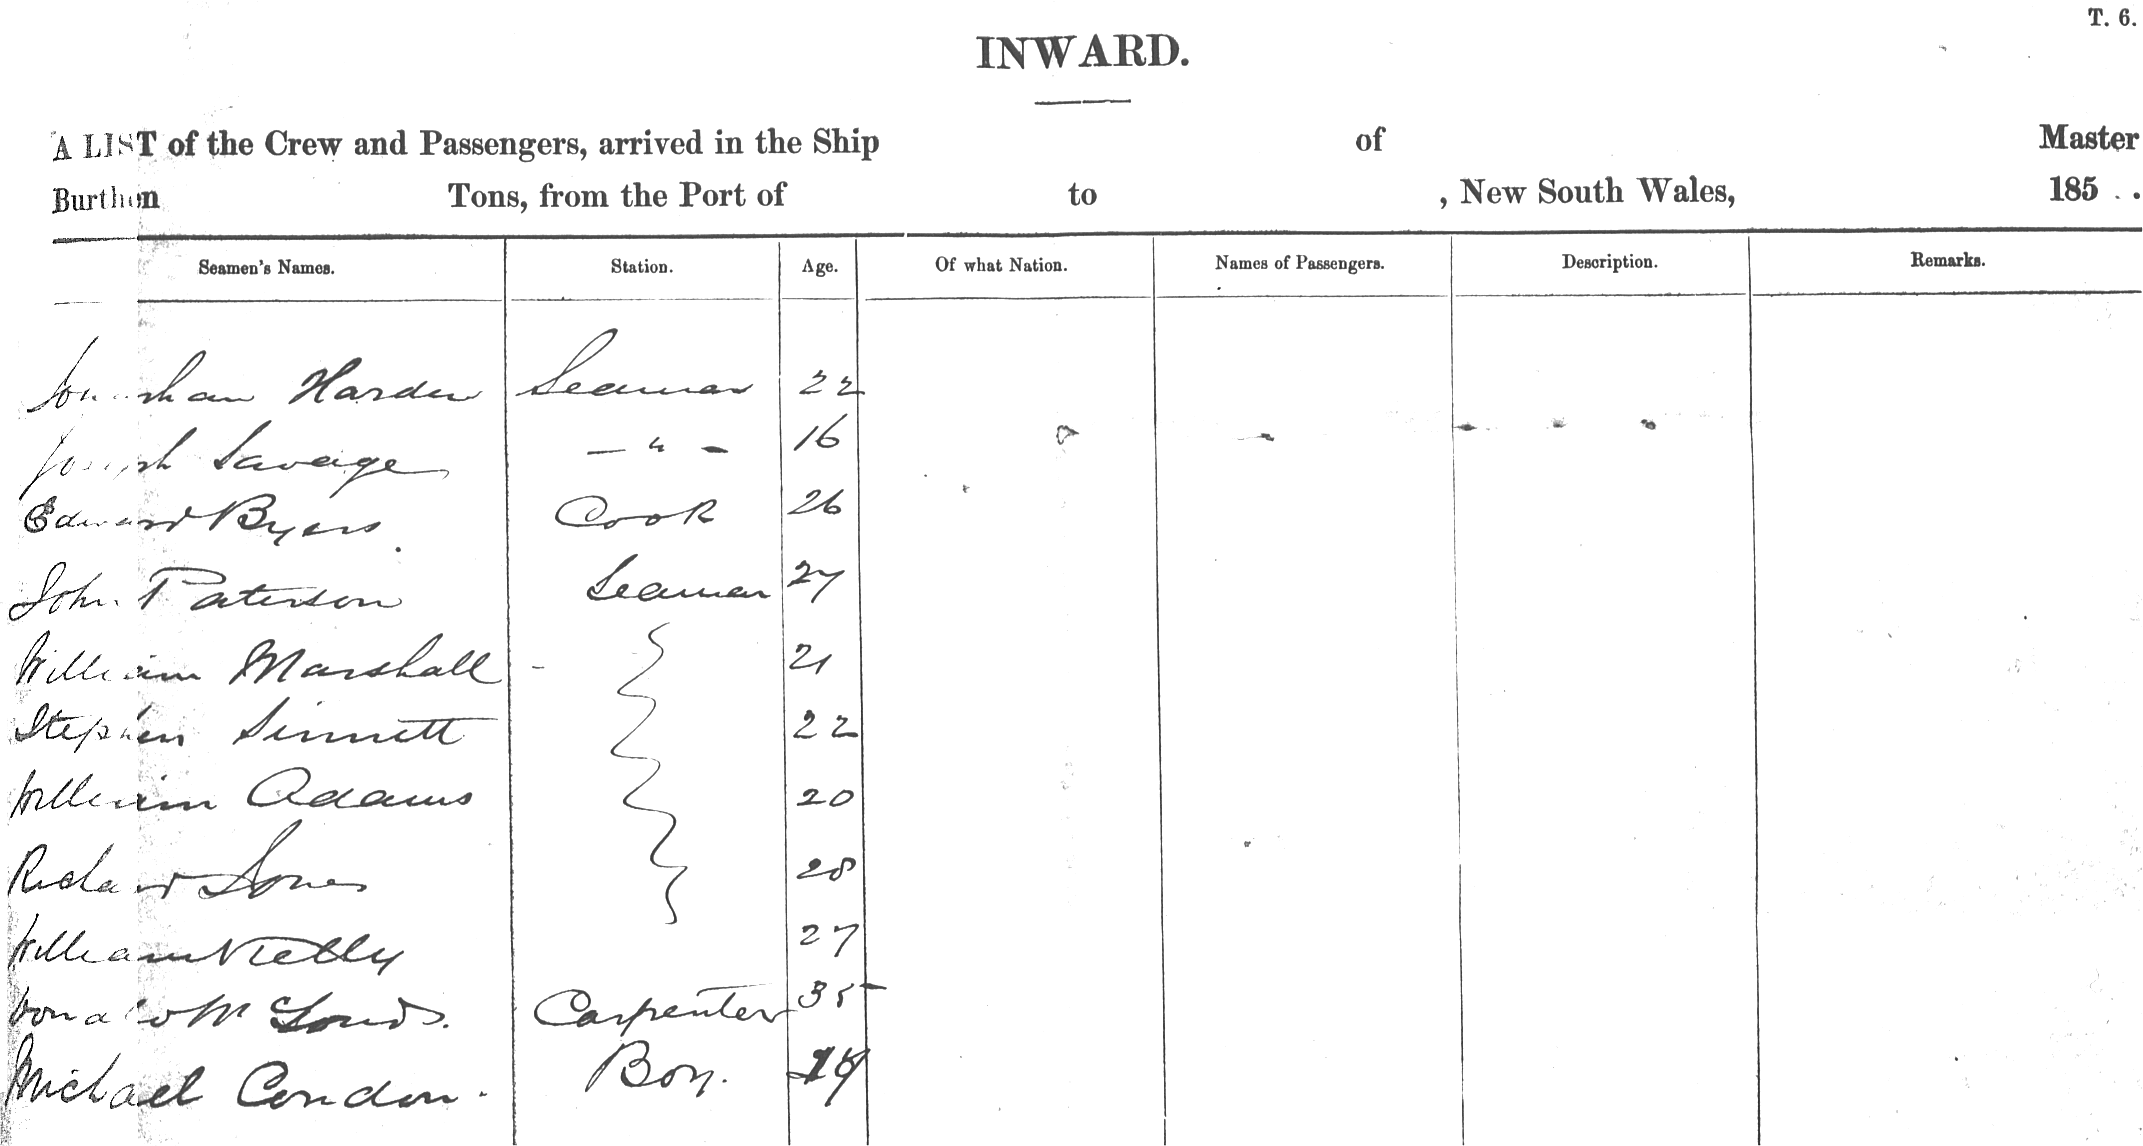 T. 6.
INWARD.
A LIST of the Crew and Passengers, arrived in the Ship of Master
Burthen Tons, from the Port of to , New South Wales, 185 . .
Seamen's Names. Station. Age. Of what Nation. Names of Passengers. Description. Remarks.
Jonathan Harden Seaman 22
Joseph Savage — " — 16
Edward Byers. Cook 26
John Paterson Seaman 27
William Marshall - 21
Stephen Sinnett 22
William Adams 20
Richard Jones 28
William Kelly 27
Donald Mc Carpenter 35
Michael Condon. Boy.